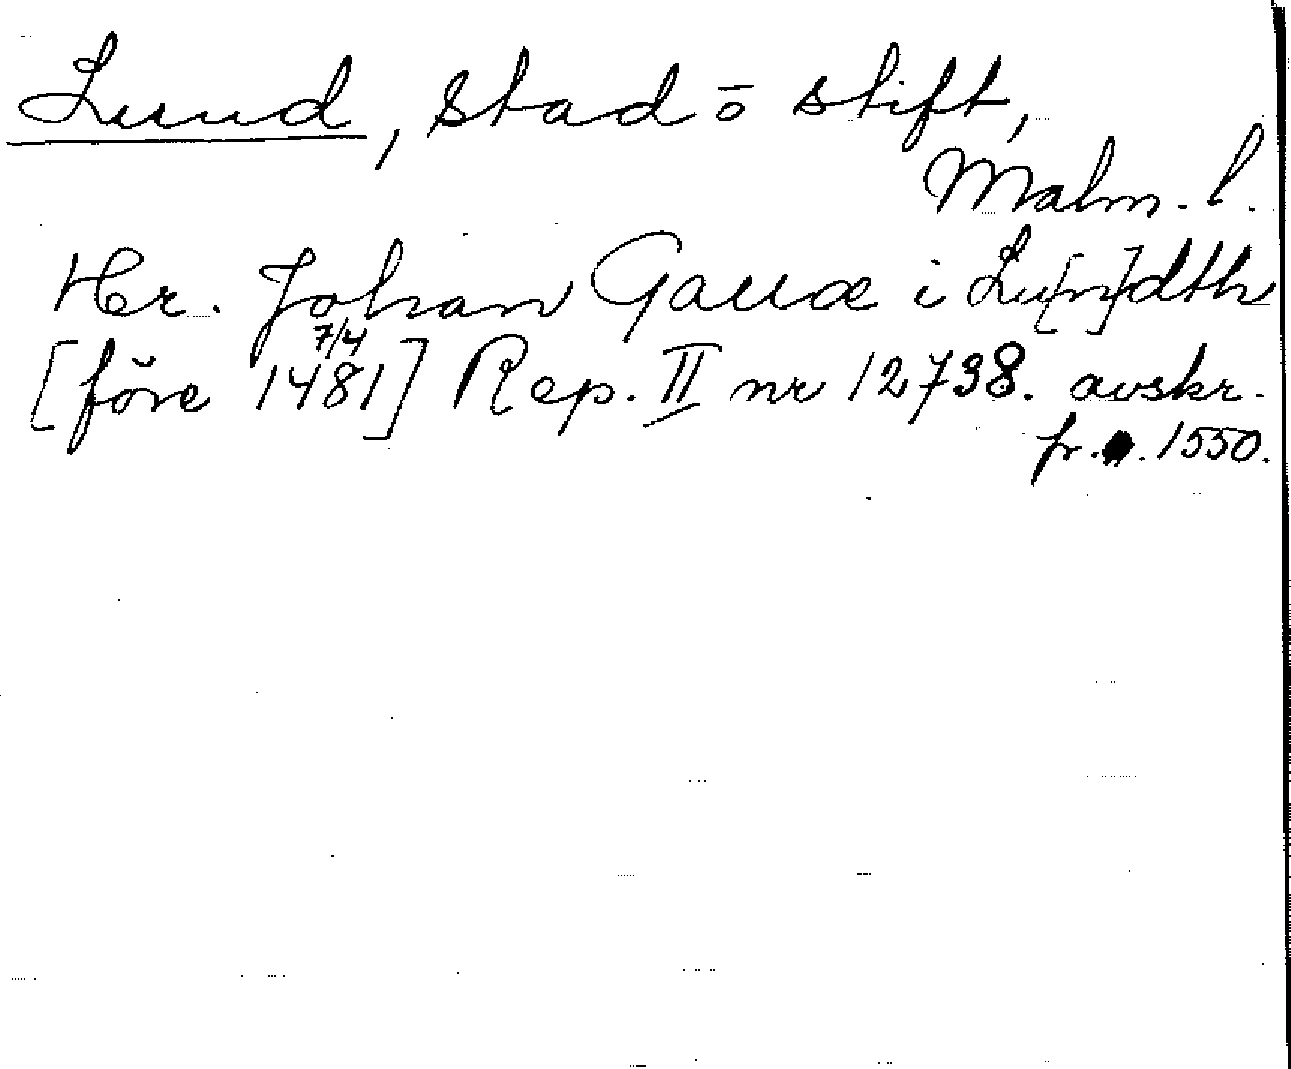 Lund, stad o stift,
Malm. l.
Hr. Johan Gauæ i Lu[n]dth
[före 7/4 1481] Rep. II nr 12738. avskr.
fr. 1550.